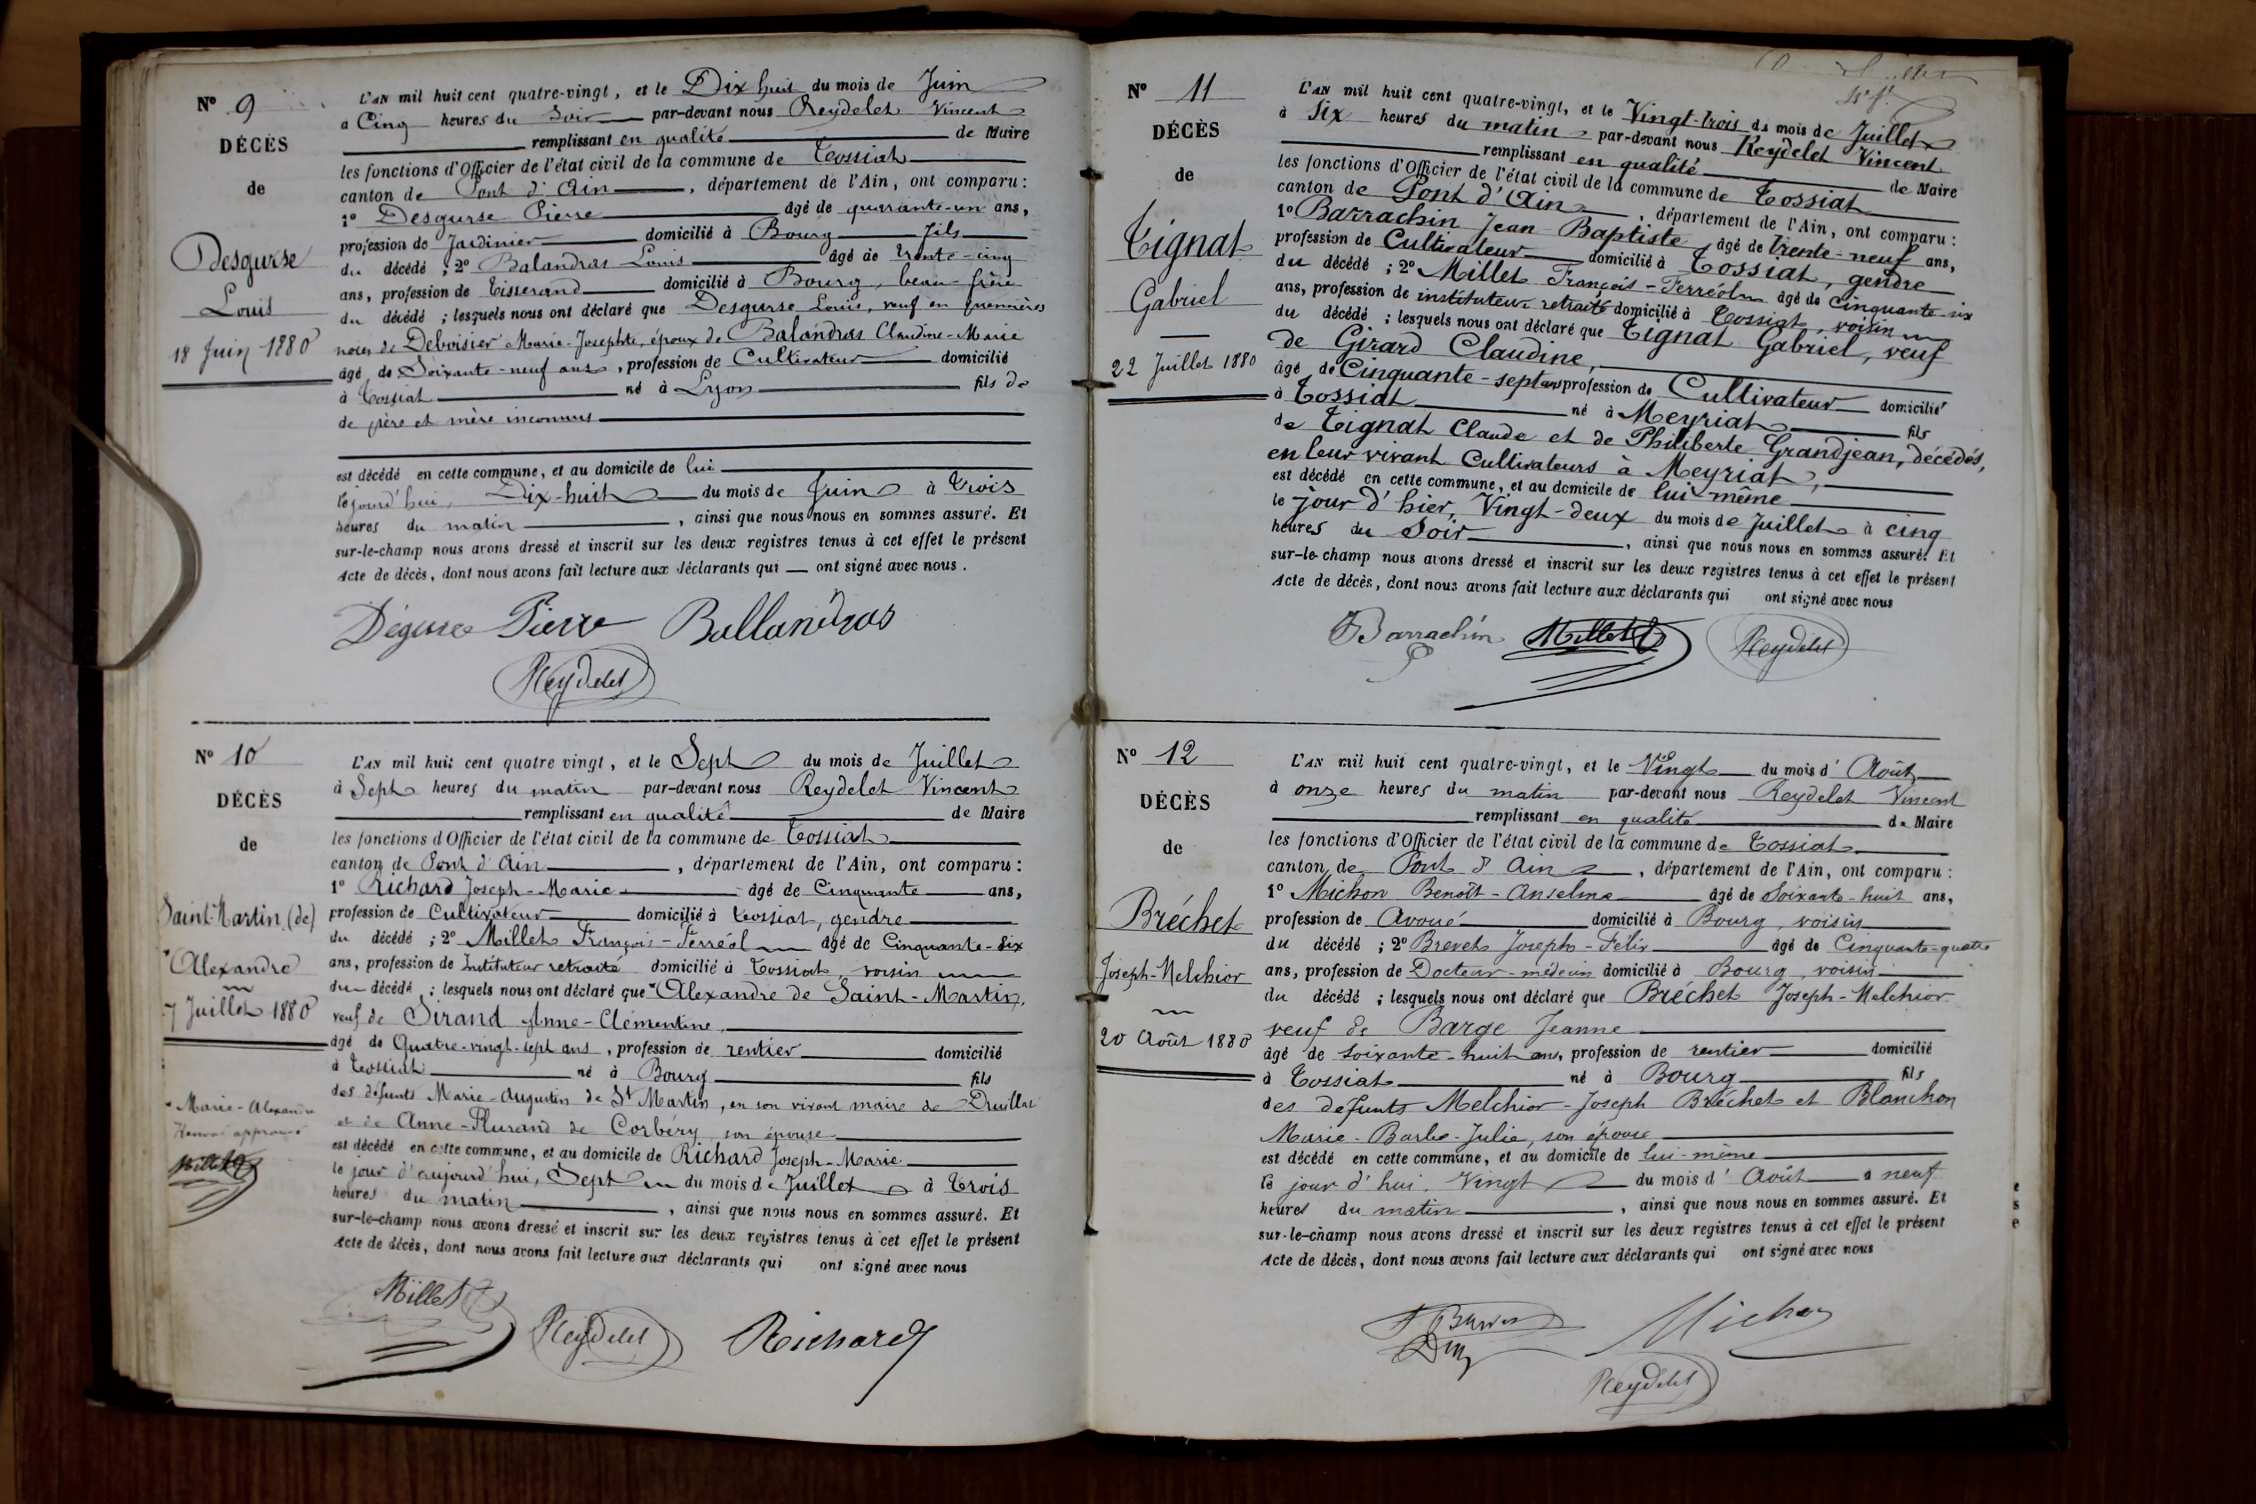 N° 9
DÉCÈS
de
Desgurse
Louis
18 Juin 1880
L'AN mil huit cent quatre-vingt, et le Dix huit du mois de Juin
à Cinq heures du Soir par-devant nous Reydelet Vincent
remplissant en qualité de Maire
les fonctions d'Officier de l'état civil de la commune de Tossiat
canton de Pont d'Ain, département de l'Ain, ont comparu :
1° Desgurse Pierre âgé de quarante-un ans,
profession de Jardinier domicilié à Bourg fils
du décédé ; 2° Balandras Louis âgé de trente-cinq
ans, profession de Tisserand domicilié à Bourg, beau-frère
du décédé ; lesquels nous ont déclaré que Desgurse Louis, veuf en premières
noces de Deboisier Marie-Josephte, époux de Balandras Claudine-Marie
âgé de Soixante-neuf ans, profession de Cultivateur domicilié
à Tossiat né à Lyon fils de
de père et mère inconnus
est décédé en cette commune, et au domicile de lui
le jourd'hui, Dix-huit du mois de Juin à Trois
heures du matin, ainsi que nous nous en sommes assuré. Et
sur-le-champ nous avons dressé et inscrit sur les deux registres tenus à cet effet le présent
Acte de décès, dont nous avons fait lecture aux déclarants qui ont signé avec nous.
Dégurse Pierre Ballandras
Reydelet
N° 10
DÉCÈS
de
Saint-Martin (de)
Alexandre
7 Juillet 1880
Marie-Alexandre
Renvoi approuvé
Millet
L'AN mil huit cent quatre vingt, et le Sept du mois de Juillet
à Sept heures du matin par-devant nous Reydelet Vincent
remplissant en qualité de Maire
les fonctions d'Officier de l'état civil de la commune de Tossiat
canton de Pont d'Ain, département de l'Ain, ont comparu :
1° Richard Joseph-Marie âgé de Cinquante ans,
profession de Cultivateur domicilié à Tossiat, gendre
du décédé ; 2° Millet François-Ferréol âgé de Cinquante-Six
ans, profession de Instituteur retraité domicilié à Tossiat, voisin
du décédé ; lesquels nous ont déclaré que Alexandre de Saint-Martin,
veuf de Sirand Anne-Clémentine,
âgé de Quatre-vingt-sept ans, profession de rentier domicilié
à Tossiat né à Bourg fils
des défunts Marie-Augustin de St Martin, en son vivant maire de Druillat
et de Anne-Flurand de Corbéry son épouse
est décédé en cette commune, et au domicile de Richard Joseph-Marie
le jour d'aujourd'hui, Sept du mois de Juillet à Trois
heures du matin, ainsi que nous nous en sommes assuré. Et
sur-le-champ nous avons dressé et inscrit sur les deux registres tenus à cet effet le présent
Acte de décès, dont nous avons fait lecture aux déclarants qui ont signé avec nous
Millet Reydelet Richard
N° 11
DÉCÈS
de
Tignat
Gabriel
22 Juillet 1880
L'AN mil huit cent quatre-vingt, et le Vingt-trois du mois de Juillet
à Six heures du matin par-devant nous Reydelet Vincent
remplissant en qualité de Maire
les fonctions d'Officier de l'état civil de la commune de Tossiat
canton de Pont d'Ain, département de l'Ain, ont comparu :
1° Barrachin Jean-Baptiste, âgé de trente-neuf ans,
profession de Cultivateur domicilié à Tossiat, gendre
du décédé ; 2° Millet François-Ferréol âgé de cinquante-six
ans, profession de instituteur retraité domicilié à Tossiat, voisin
du décédé ; lesquels nous ont déclaré que Tignat Gabriel, veuf
de Girard Claudine,
âgé de Cinquante-sept ans profession de Cultivateur domicilié
à Tossiat né à Meyriat fils
de Tignat Claude et de Philiberte Grandjean, décédés,
en leur vivant Cultivateurs à Meyriat,
est décédé en cette commune, et au domicile de lui même
le jour d'hier, Vingt-deux du mois de Juillet à cinq
heures du Soir, ainsi que nous nous en sommes assuré. Et
sur-le-champ nous avons dressé et inscrit sur les deux registres tenus à cet effet le présent
Acte de décès, dont nous avons fait lecture aux déclarants qui ont signé avec nous
Barrachin Millet Reydelet
N° 12
DÉCÈS
de
Bréchet
Joseph-Melchior
20 Août 1880
L'AN mil huit cent quatre-vingt, et le Vingt du mois d'Août
à onze heures du matin par-devant nous Reydelet Vincent
remplissant en qualité de Maire
les fonctions d'Officier de l'état civil de la commune de Tossiat
canton de Pont d'Ain, département de l'Ain, ont comparu :
1° Michon Benoît-Anselme âgé de Soixante-huit ans,
profession de Avoué domicilié à Bourg, voisin
du décédé ; 2° Brevet Joseph-Félix âgé de Cinquante-quatre
ans, profession de Docteur-médecin domicilié à Bourg, voisin
du décédé ; lesquels nous ont déclaré que Bréchet Joseph-Melchior
veuf de Barge Jeanne
âgé de soixante-huit ans, profession de rentier domicilié
à Tossiat né à Bourg fils
des défunts Melchior-Joseph Bréchet et Blanchon
Marie-Barbe-Julie, son épouse
est décédé en cette commune, et au domicile de lui-même
le jour d'hui, Vingt du mois d'Août à neuf
heures du matin, ainsi que nous nous en sommes assuré. Et
sur-le-champ nous avons dressé et inscrit sur les deux registres tenus à cet effet le présent
Acte de décès, dont nous avons fait lecture aux déclarants qui ont signé avec nous
Michon
Reydelet